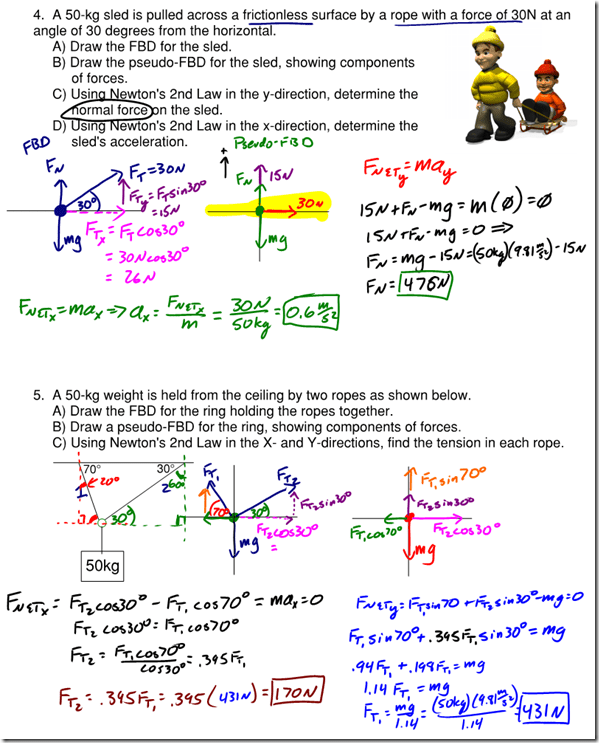 4. A 50-kg sled is pulled across a frictionless surface by a rope with a force of 30N at an
angle of 30 degrees from the horizontal.
A) Draw the FBD for the sled.
B) Draw the pseudo-FBD for the sled, showing components
of forces.
C) Using Newton's 2nd Law in the y-direction, determine the
normal force on the sled.
D) Using Newton's 2nd Law in the x-direction, determine the
sled's acceleration.
FBD
F_N
F_T=30N
30°
F_Ty=F_Tsin30°
=15N
mg
F_Tx=F_Tcos30°
=30Ncos30°
=26N
+
Pseudo-FBD
F_N
15N
30N
mg
F_NETy=ma_y
15N+F_N-mg=m(∅)=∅
15N+F_N-mg=0=>
F_N=mg-15N=(50kg)(9.81 m/s²)-15N
F_N=476N
F_NETx=ma_x=>a_x=F_NETx/m=30N/50kg=0.6 m/s²
5. A 50-kg weight is held from the ceiling by two ropes as shown below.
A) Draw the FBD for the ring holding the ropes together.
B) Draw a pseudo-FBD for the ring, showing components of forces.
C) Using Newton's 2nd Law in the X- and Y-directions, find the tension in each rope.
70°
30°
20°
1
2
60°
30°
50kg
F_T1
F_T2
70°
30°
F_T2sin30°
F_T2cos30°
=
mg
F_T1sin70°
F_T2sin30°
F_T1cos70°
F_T2cos30°
mg
F_NETx=F_T2cos30°-F_T1cos70°=ma_x=0
F_T2cos30°=F_T1cos70°
F_T2=F_T1cos70°/cos30°=.395F_T1
F_T2=.395F_T1=.395(431N)=170N
F_NETy=F_T1sin70+F_T2sin30°-mg=0
F_T1sin70°+.395F_T1sin30°=mg
.94F_T1+.198F_T1=mg
1.14F_T1=mg
F_T1=mg/1.14=(50kg)(9.81 m/s²)/1.14=431N